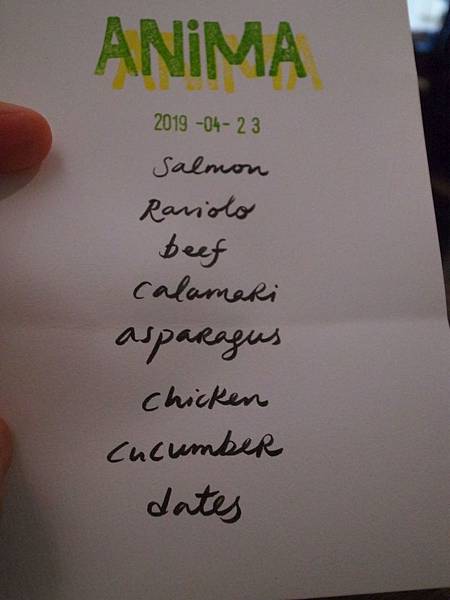 ANiMA
2019 -04- 23
Salmon
Raviolo
beef
calamari
asparagus
chicken
cucumber
dates